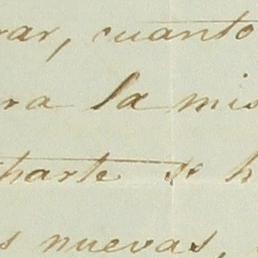 rar, cuanto
ra la mis
harte se h
s nuevas,